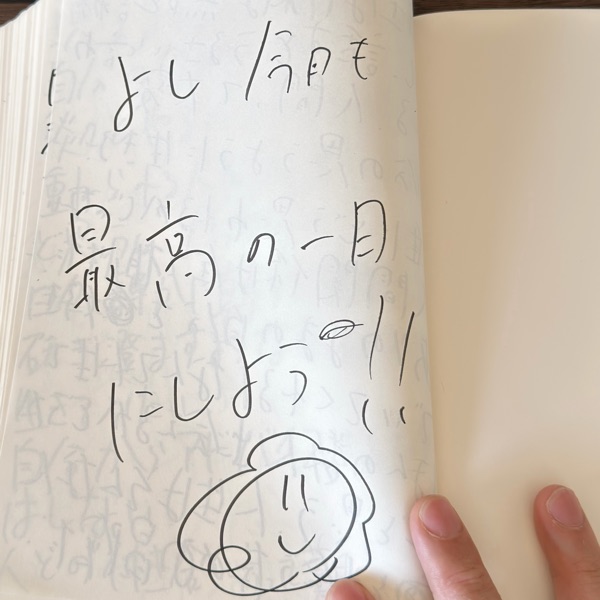 よし 今日も
最高の一日
にしよう!!